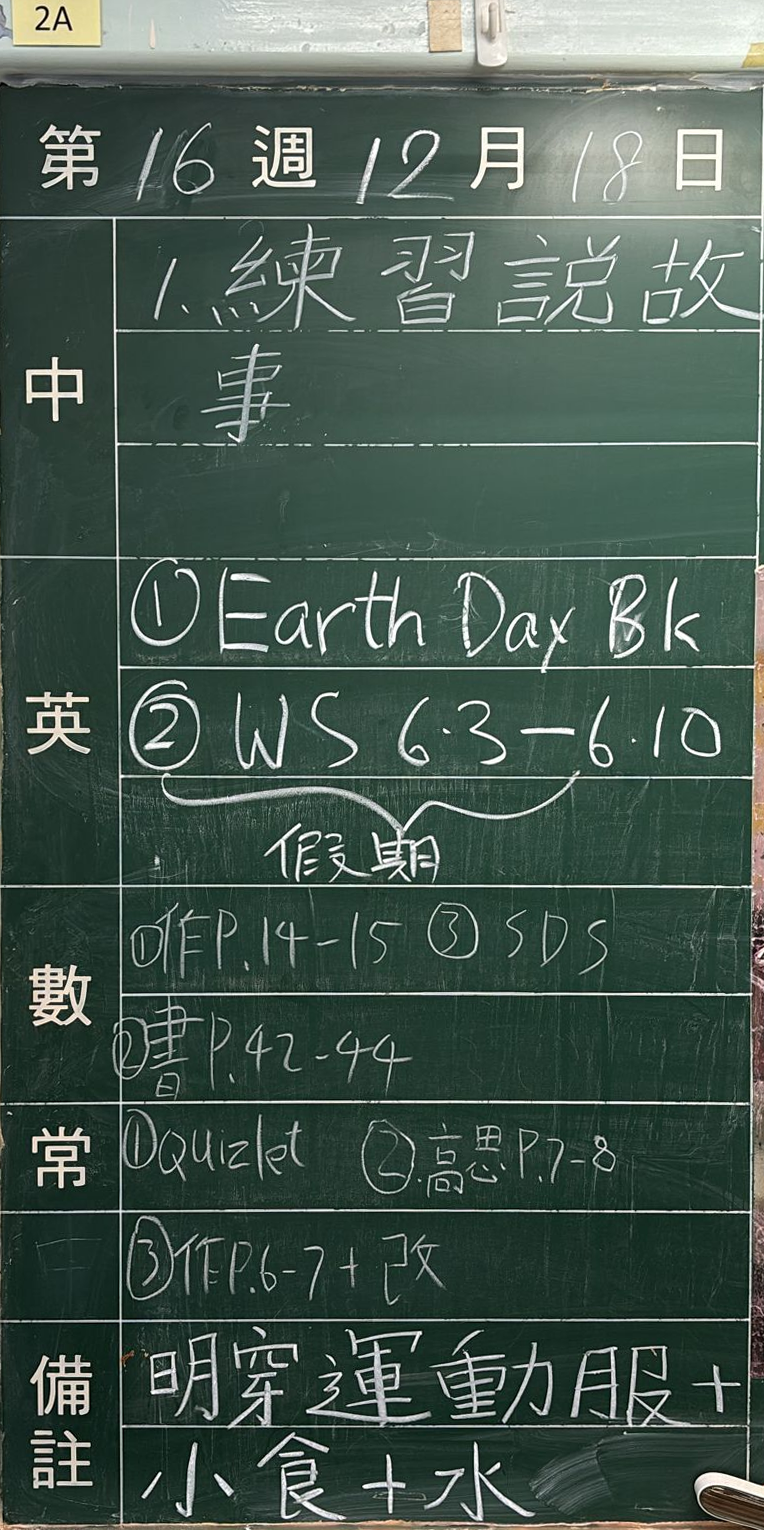 2A
第 16 週 12 月 18 日
中
1. 練習說故
事
英
① Earth Day Bk
② WS 6.3-6.10
假期
數
① 作P.14-15 ③ SDS
② 書P.42-44
常
① Quizlet ② 高思P.7-8
③ 作P.6-7 + 改
備註
明穿運動服+
小食+水